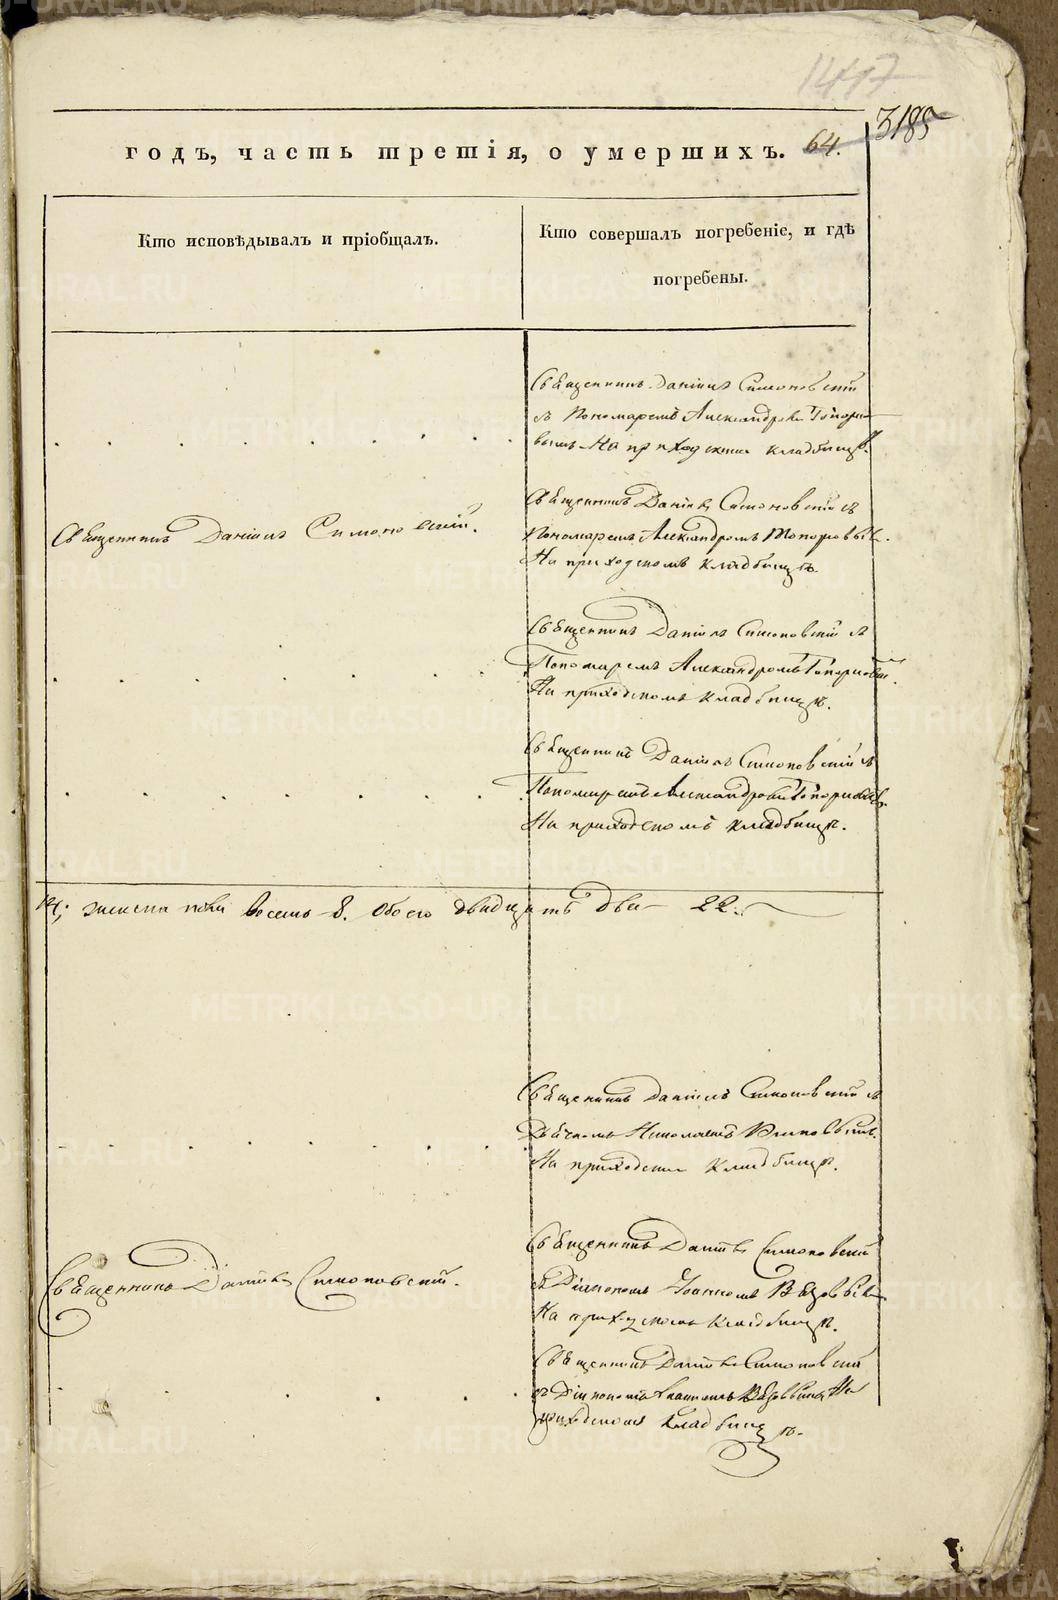 1447
3185
годъ, часть третія, о умершихъ. 64.
Кто исповѣдывалъ и пріобщалъ.
Кто совершалъ погребеніе, и гдѣ
погребены.
Священникъ Даніилъ Симоновскій
съ Пономаремъ Александромъ Топорко-
вымъ На приходскомъ кладбищѣ.
Священникъ Даніилъ Симоновскій.
Священникъ Даніилъ Симоновскій съ
Пономаремъ Александромъ Топорковымъ.
На приходскомъ кладбищѣ.
Священникъ Даніилъ Симоновскій съ
Пономаремъ Александромъ Топорковым.
На приходскомъ кладбищѣ.
Священникъ Даніилъ Симоновскій съ
Пономаремъ Александромъ Топорковым.
На приходскомъ кладбищѣ.
14; женска пола восемь 8. Обоего двадцать два 22.
Священникъ Даніилъ Симоновскій съ
Дьячкомъ Николаемъ
На приходском кладбищѣ.
Священникъ Даніилъ Симоновскій.
Священникъ Даніилъ Симоновскій
съ Діакономъ Іоанномъ Вязовымъ
На приходскомъ кладбищѣ.
Священникъ Даніилъ Симоновскій
съ Діакономъ Іоанномъ На
приходскомъ кладбищѣ.
METRIKI.GASO-URAL.RU